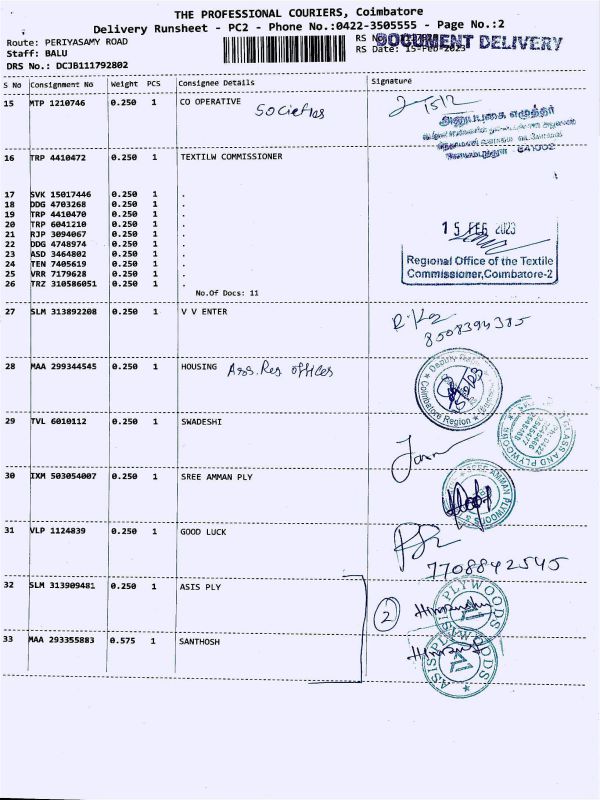 THE PROFESSIONAL COURIERS, Coimbatore
Delivery Runsheet - PC2 - Phone No.:0422-3505555 - Page No.:2
Route: PERIYASAMY ROAD
RS
DOCUMENT DELIVERY
Staff: BALU
RS Date: 15-Feb-2023
DRS No.: DCJB111792802
S No Consignment No Weight PCS Consignee Details Signature
15 MTP 1210746 0.250 1 CO OPERATIVE Societies
அனுபுகை எழுத்தர்
641002
16 TRP 4410472 0.250 1 TEXTILW COMMISSIONER
17 SVK 15017446 0.250 1 .
18 DDG 4703268 0.250 1 .
19 TRP 4410470 0.250 1 .
20 TRP 6041210 0.250 1 .
21 RJP 3094067 0.250 1 .
22 DDG 4748974 0.250 1 .
23 ASD 3464802 0.250 1 .
24 TEN 7405619 0.250 1 .
25 VRR 7179628 0.250 1 .
26 TRZ 310586051 0.250 1 .
No.Of Docs: 11
15 FEB 2023
Regional Office of the Textile
Commissioner,Coimbatore-2
27 SLM 313892208 0.250 1 V V ENTER
8508394385
28 MAA 299344545 0.250 1 HOUSING Ass.Reg offices
Coimbatore Region
29 TVL 6010112 0.250 1 SWADESHI
GLASS AND PLYWOOD
30 IXM 503054007 0.250 1 SREE AMMAN PLY
SREE AMMAN PLYWOODS
31 VLP 1124839 0.250 1 GOOD LUCK
7708842545
32 SLM 313909481 0.250 1 ASIS PLY
2
ASIS PLYWOODS
33 MAA 293355883 0.575 1 SANTHOSH
ASIS PLYWOODS